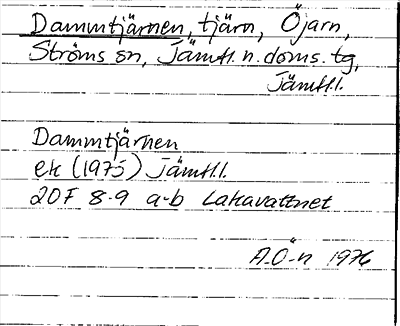 Dammtjärnen, tjärn, Öjarn,
Ströms sn, Jämtl. n. doms. tg,
Jämtl.l.
Dammtjärnen
ek (1975) Jämtl.l.
20F 8-9 a-b Lakavattnet
A.Ö-n 1976